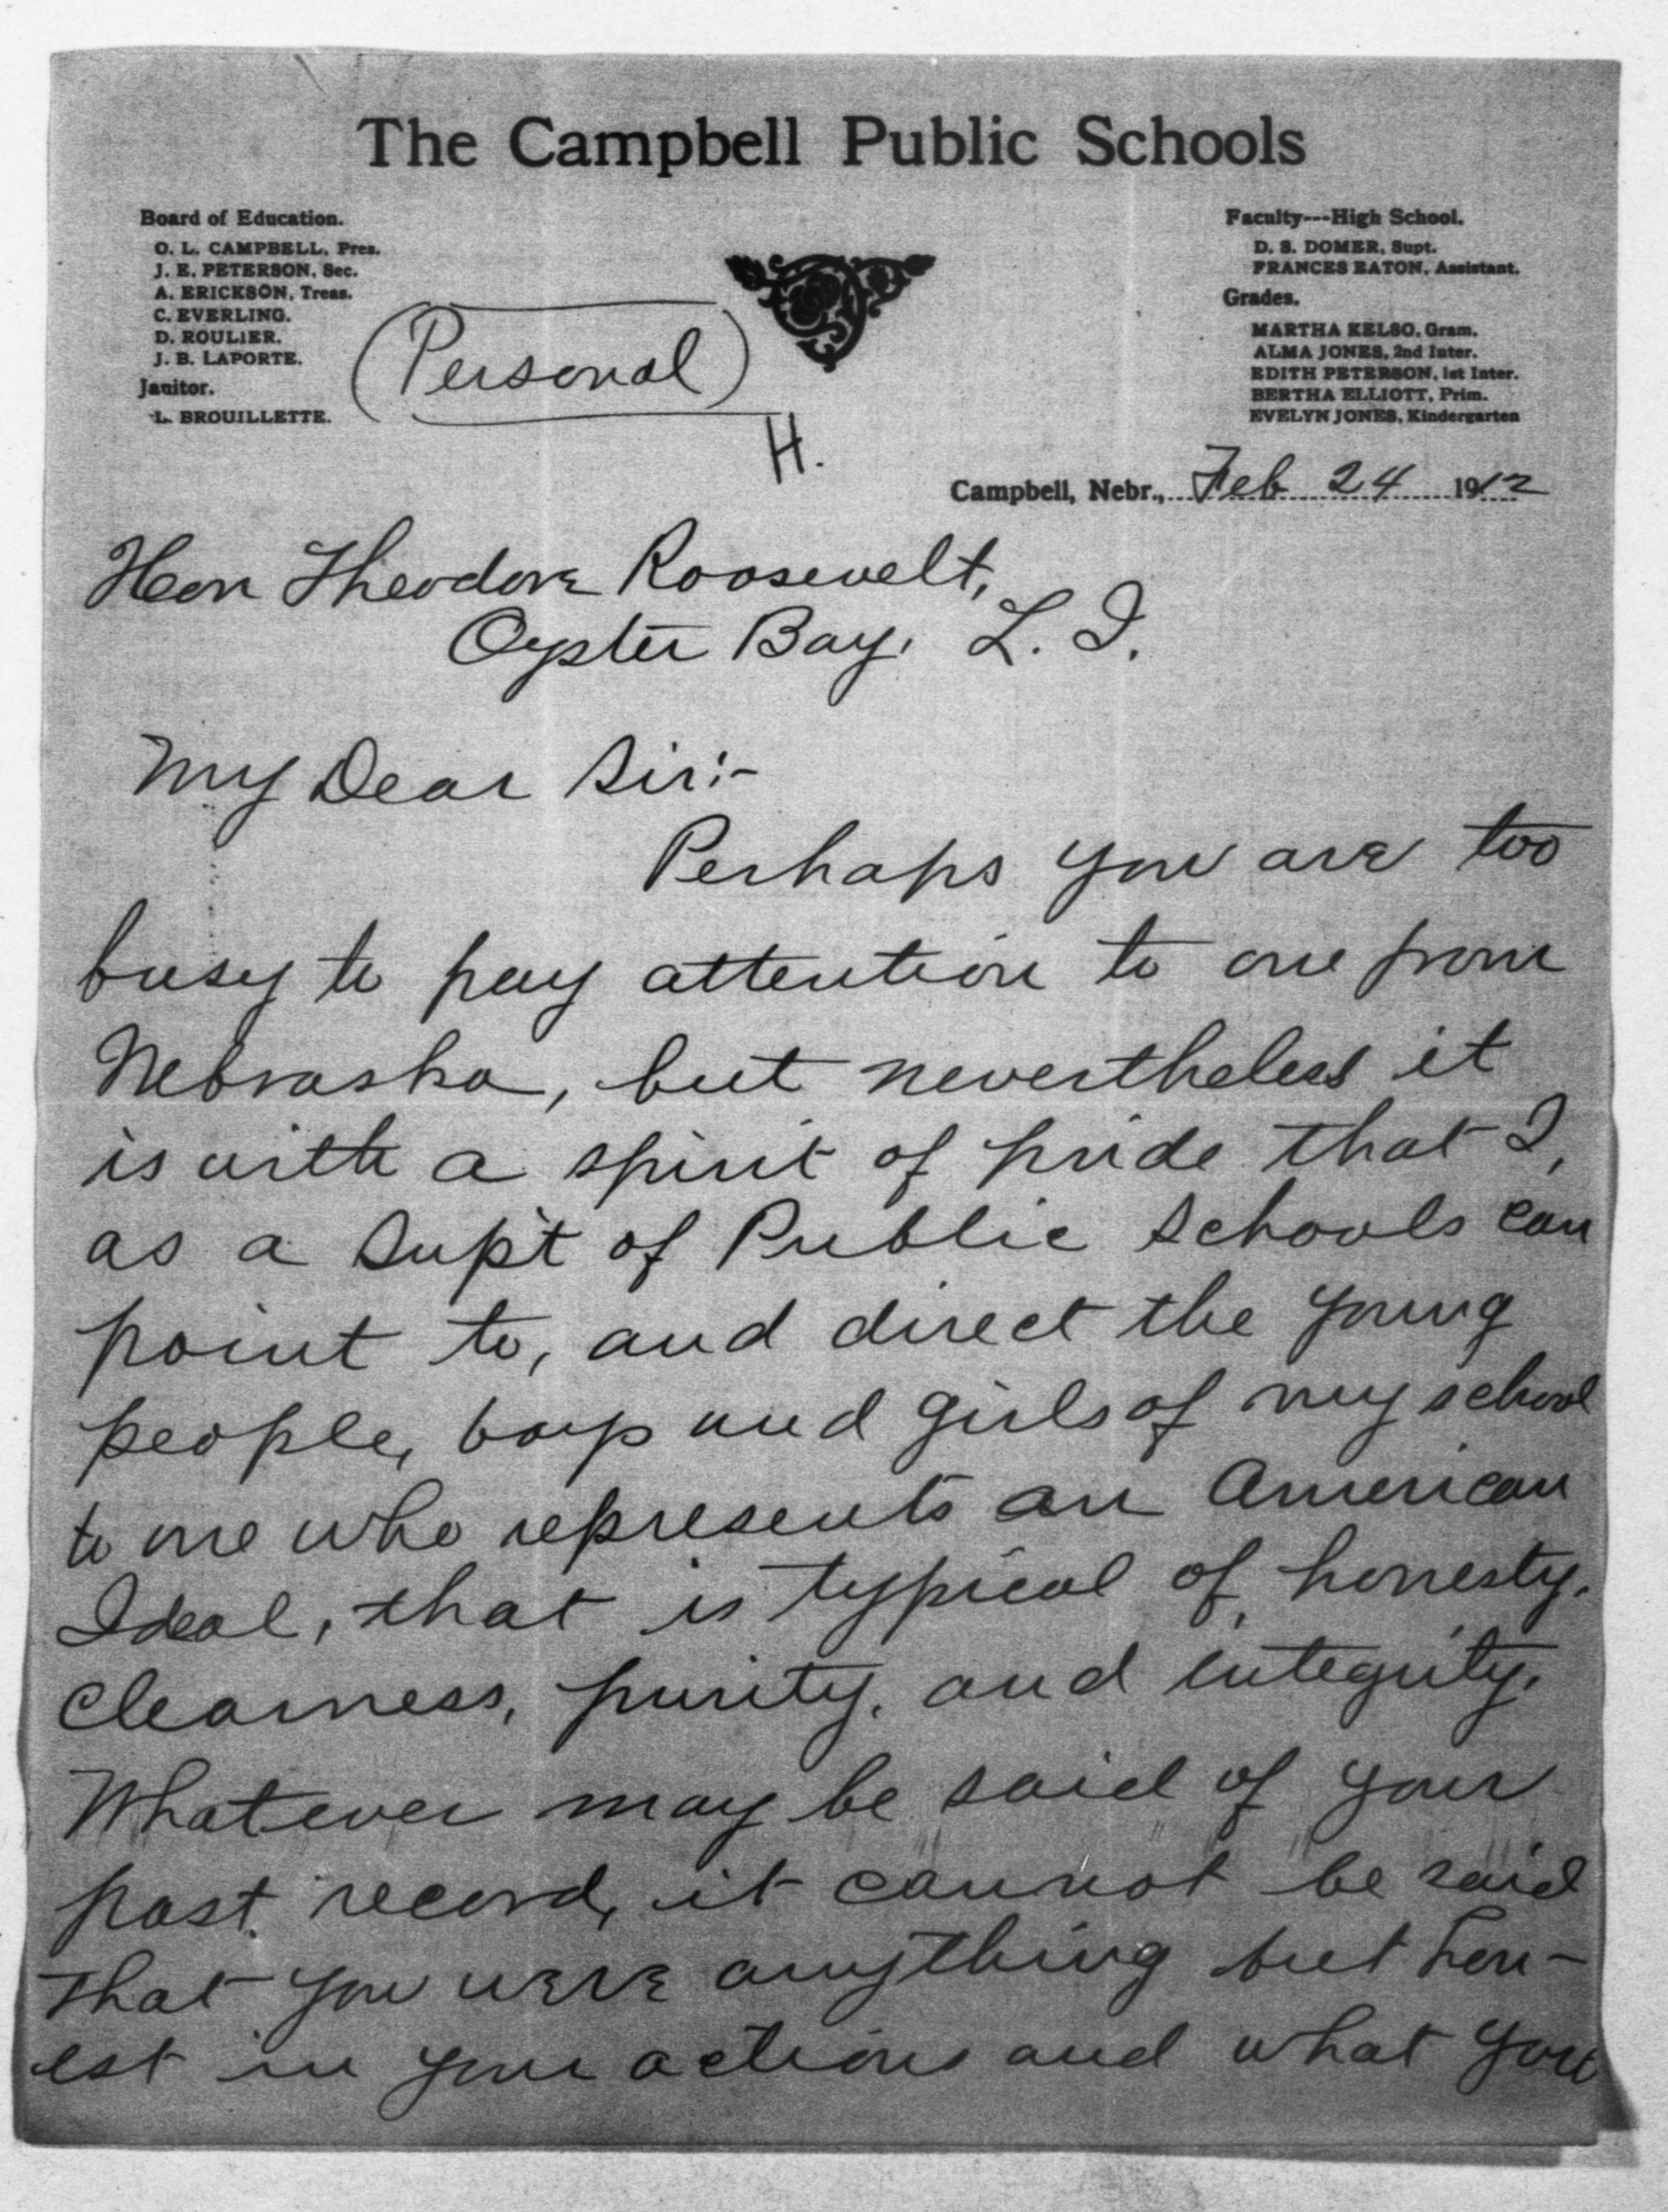 The Campbell Public Schools
Board of Education.
O. L. CAMPBELL, Pres.
J. E. PETERSON, Sec.
A. ERICKSON, Treas.
C. EVERLING.
D. ROULIER.
J. B. LAPORTE.
Janitor.
L. BROUILLETTE.
Faculty---High School.
D. S. DOMER, Supt.
FRANCES EATON, Assistant.
Grades.
MARTHA KELSO, Gram.
ALMA JONES, 2nd Inter.
EDITH PETERSON, 1st Inter.
BERTHA ELLIOTT, Prim.
EVELYN JONES, Kindergarten
(Personal)
H.
Campbell, Nebr., Feb 24 1912
Hon Theodore Roosevelt,
Oyster Bay, L. I.
My Dear Sir:-
Perhaps you are too
busy to pay attention to one from
Nebraska, but nevertheless it
is with a spirit of pride that I,
as a Sup't of Public Schools can
point to, and direct the young
people, boys and girls of my school
to one who represents an American
Ideal, that is typical of honesty,
clearness, purity, and integrity.
Whatever may be said of your
past record, it cannot be said
that you were anything but hon-
est in your actions and what you